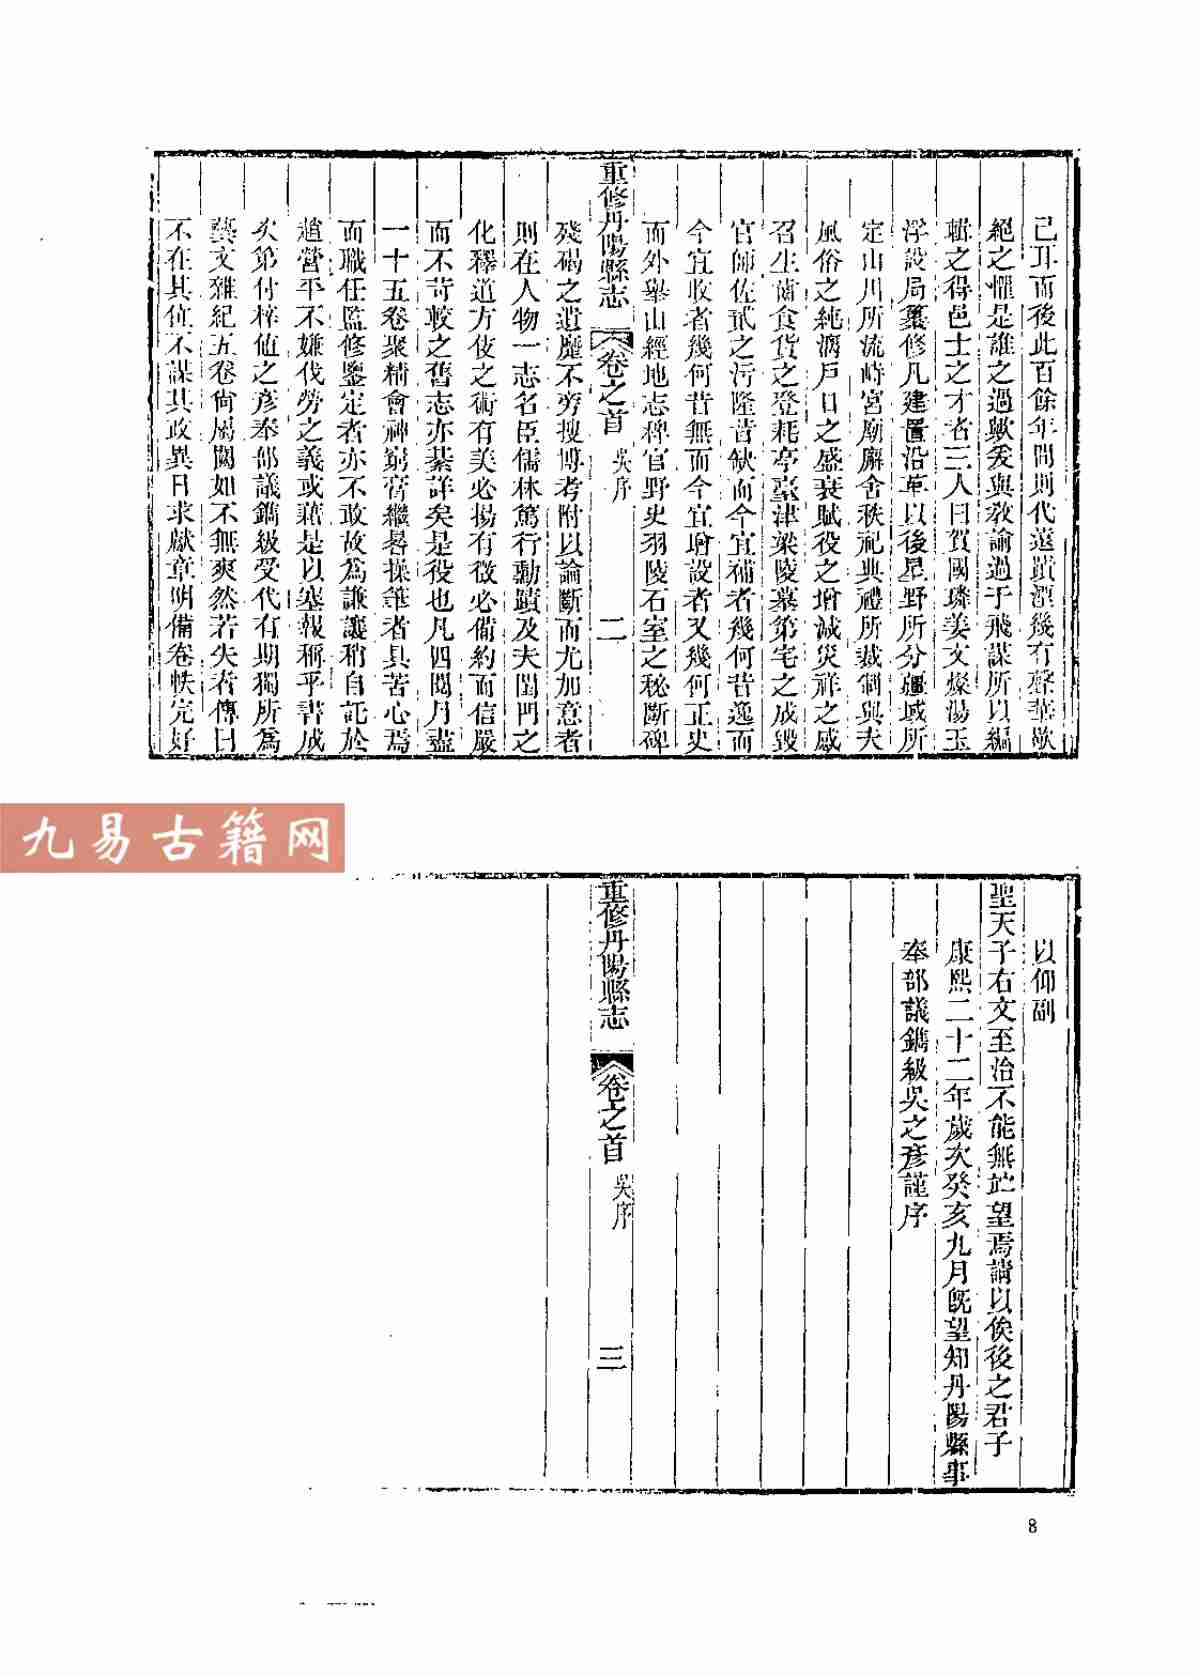 已耳而後此百餘年間則代遠蹟湮幾有聲華歇
絕之懼是誰之過歟爰與敎諭過于飛謀所以編
輯之得邑士之才者三人曰賀國璘姜文燦湯玉
浮設局纂修凡建置沿革以後星野所分疆域所
定山川所流峙宮廟廨舍秩祀典禮所裁制與夫
風俗之純漓戶口之盛衰賦役之增減災祥之感
召生齒食貨之登耗亭臺津梁陵墓第宅之成毀
官師佐貳之汚隆昔缺而今宜補者幾何昔逸而
今宜收者幾何昔無而今宜增設者又幾何正史
而外舉山經地志稗官野史羽陵石室之秘斷碑
重修丹陽縣志 卷之首 吳序 二
殘碣之遺靡不旁搜博考附以論斷而尤加意者
則在人物一志名臣儒林篤行勳蹟及夫閨門之
化釋道方伎之術有美必揚有徵必備約而信嚴
而不苛較之舊志亦綦詳矣是役也凡四閱月盡
一十五卷聚精會神窮膏繼晷操筆者具苦心焉
而職任監修鑒定者亦不敢故爲謙讓稍自託於
趙營平不嫌伐勞之義或藉是以塞報稱乎書成
矣第付梓値之彥奉部議鐫級受代有期獨所爲
藝文雜紀五卷尙屬闕如不無爽然若失者傳曰
不在其位不謀其政異日求獻章明備卷帙完好
九易古籍网
以仰副
聖天子右文至治不能無望焉請以俟後之君子
康熙二十二年歲次癸亥九月旣望知丹陽縣事
奉部議鐫級吳之彥謹序
重修丹陽縣志 卷之首 吳序 三
8